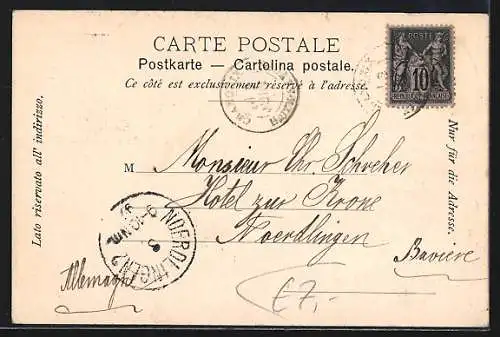 CARTE POSTALE
Postkarte — Cartolina postale.
Ce côté est exclusivement réservé à l'adresse.
POSTE
10
REPUBLIQUE FRANÇAISE
Lato riservato all' indirizzo.
Nur für die Adresse.
M Monsieur Chr. Schreher
Hotel zur Krone
Noerdlingen
Bavière
NOERDLINGEN
Allemagne
£7,-